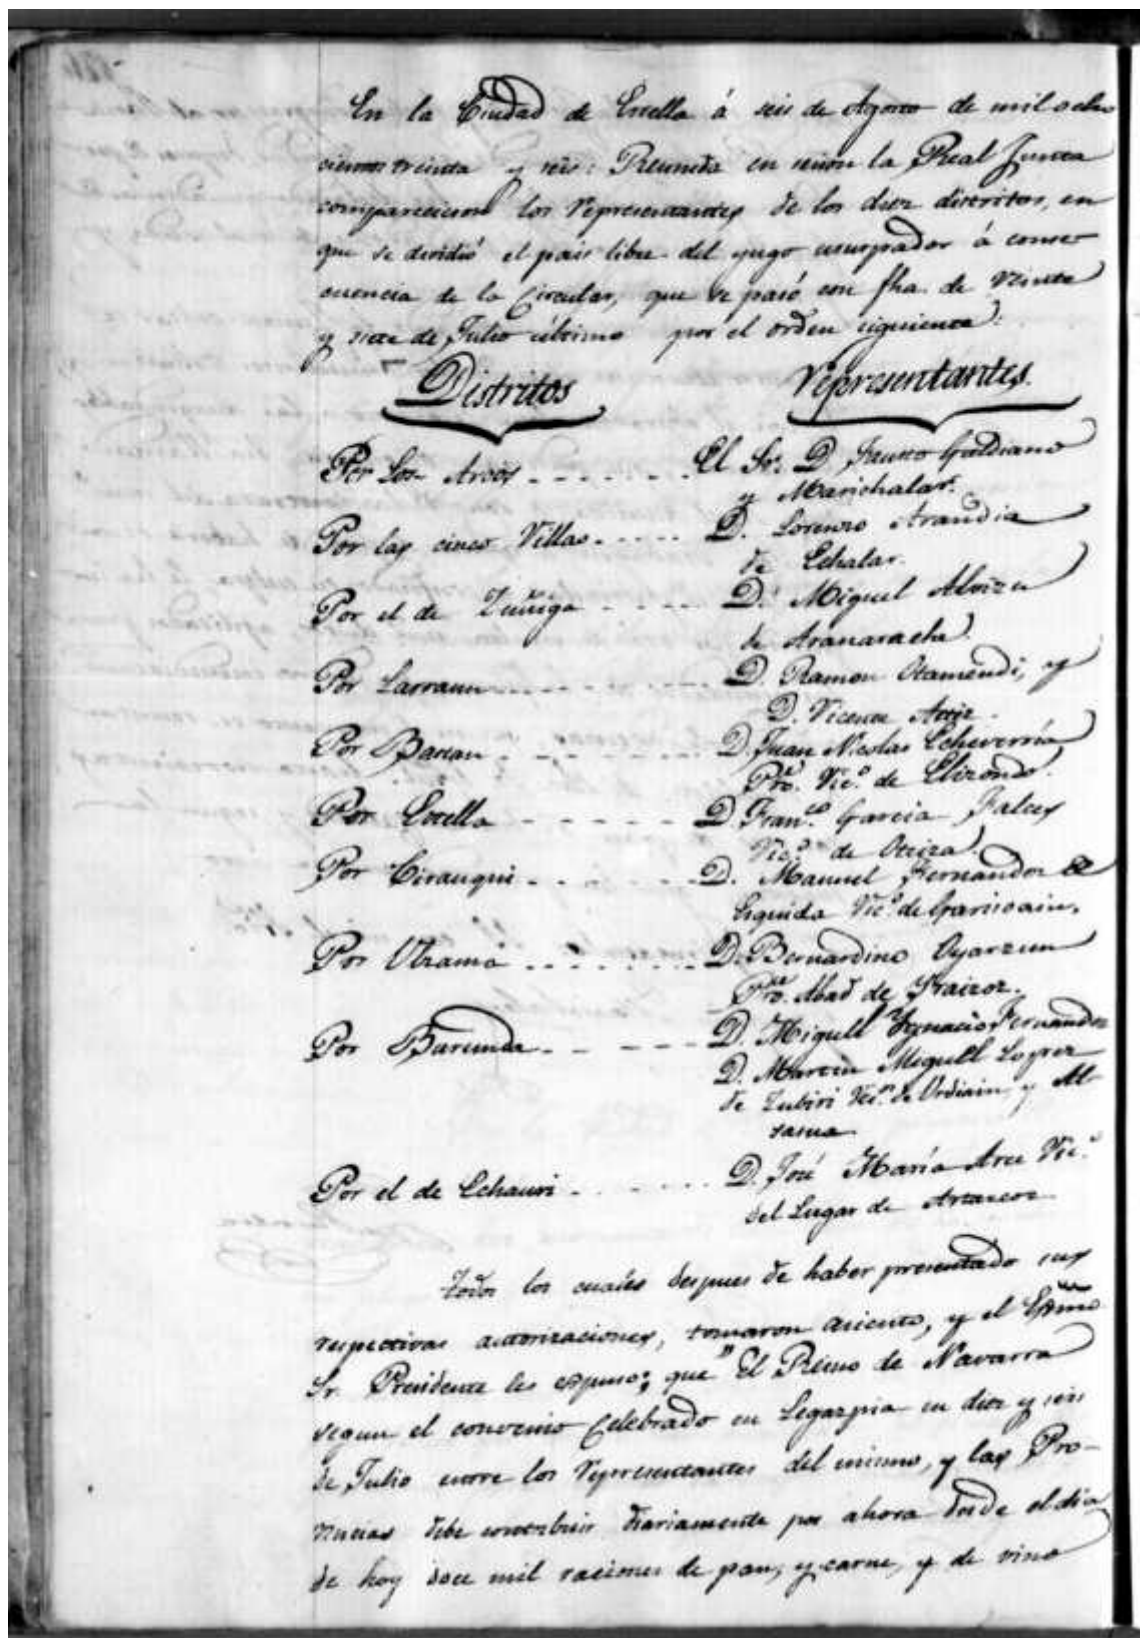 En la Ciudad de Estella á seis de Agosto de mil ocho
cientos treinta y seis: Reunida en sesion la Real Junta
comparecieron los Representantes de los diez distritos, en
que se dividió el pais libre del yugo usurpador á conse-
cuencia de la Circular, que se pasó con fha. de veinte
y siete de Julio último por el orden siguiente:
Distritos Representantes.
Por Los-Arcos - - - - - - El Sr. D. Fausto Galdiano
y Marichalar.
Por las cinco Villas - - - - D. Lorenzo Arandia
de Echalar.
Por el de Zuñiga - - - - D. Miguel Alvizu
de Aranarache.
Por Larraun - - - - - - D. Ramon Otamendi, y
D. Vicente
Por Bastan - - - - - - D. Juan Nicolas Echeverría
Pro. Vic.º de Elizondo.
Por Estella - - - - - - D. Fran.co Garcia Falces
Vic.º de Oteiza.
Por Cirauqui - - - - - - D. Manuel Fernandez de
Eguida Vic.º de Garisoain.
Por Ulzama - - - - - - D. Bernardino Oyarzun
Pro. Abad de Iraizoz.
Por Burunda - - - - - D. Miguel Ygnacio Fernandez
D. Martin Miguel Lopez
de Zubiri Vec.s de Urdiain y Al-
sasua
Por el de Echauri - - - - - D. José María Arce Vic.º
del Lugar de Artazcoz
Todos los cuales despues de haber presentado sus
respectivas autorizaciones, tomaron asiento, y el Exmo
Sr. Presidente les espuso: que "El Reino de Navarra
segun el convenio Celebrado en Legazpia en diez y seis
de Julio entre los Representantes del mismo, y las Pro-
vincias debe contribuir diariamente por ahora desde el dia
de hoy doce mil raciones de pan, y carne, y de vino